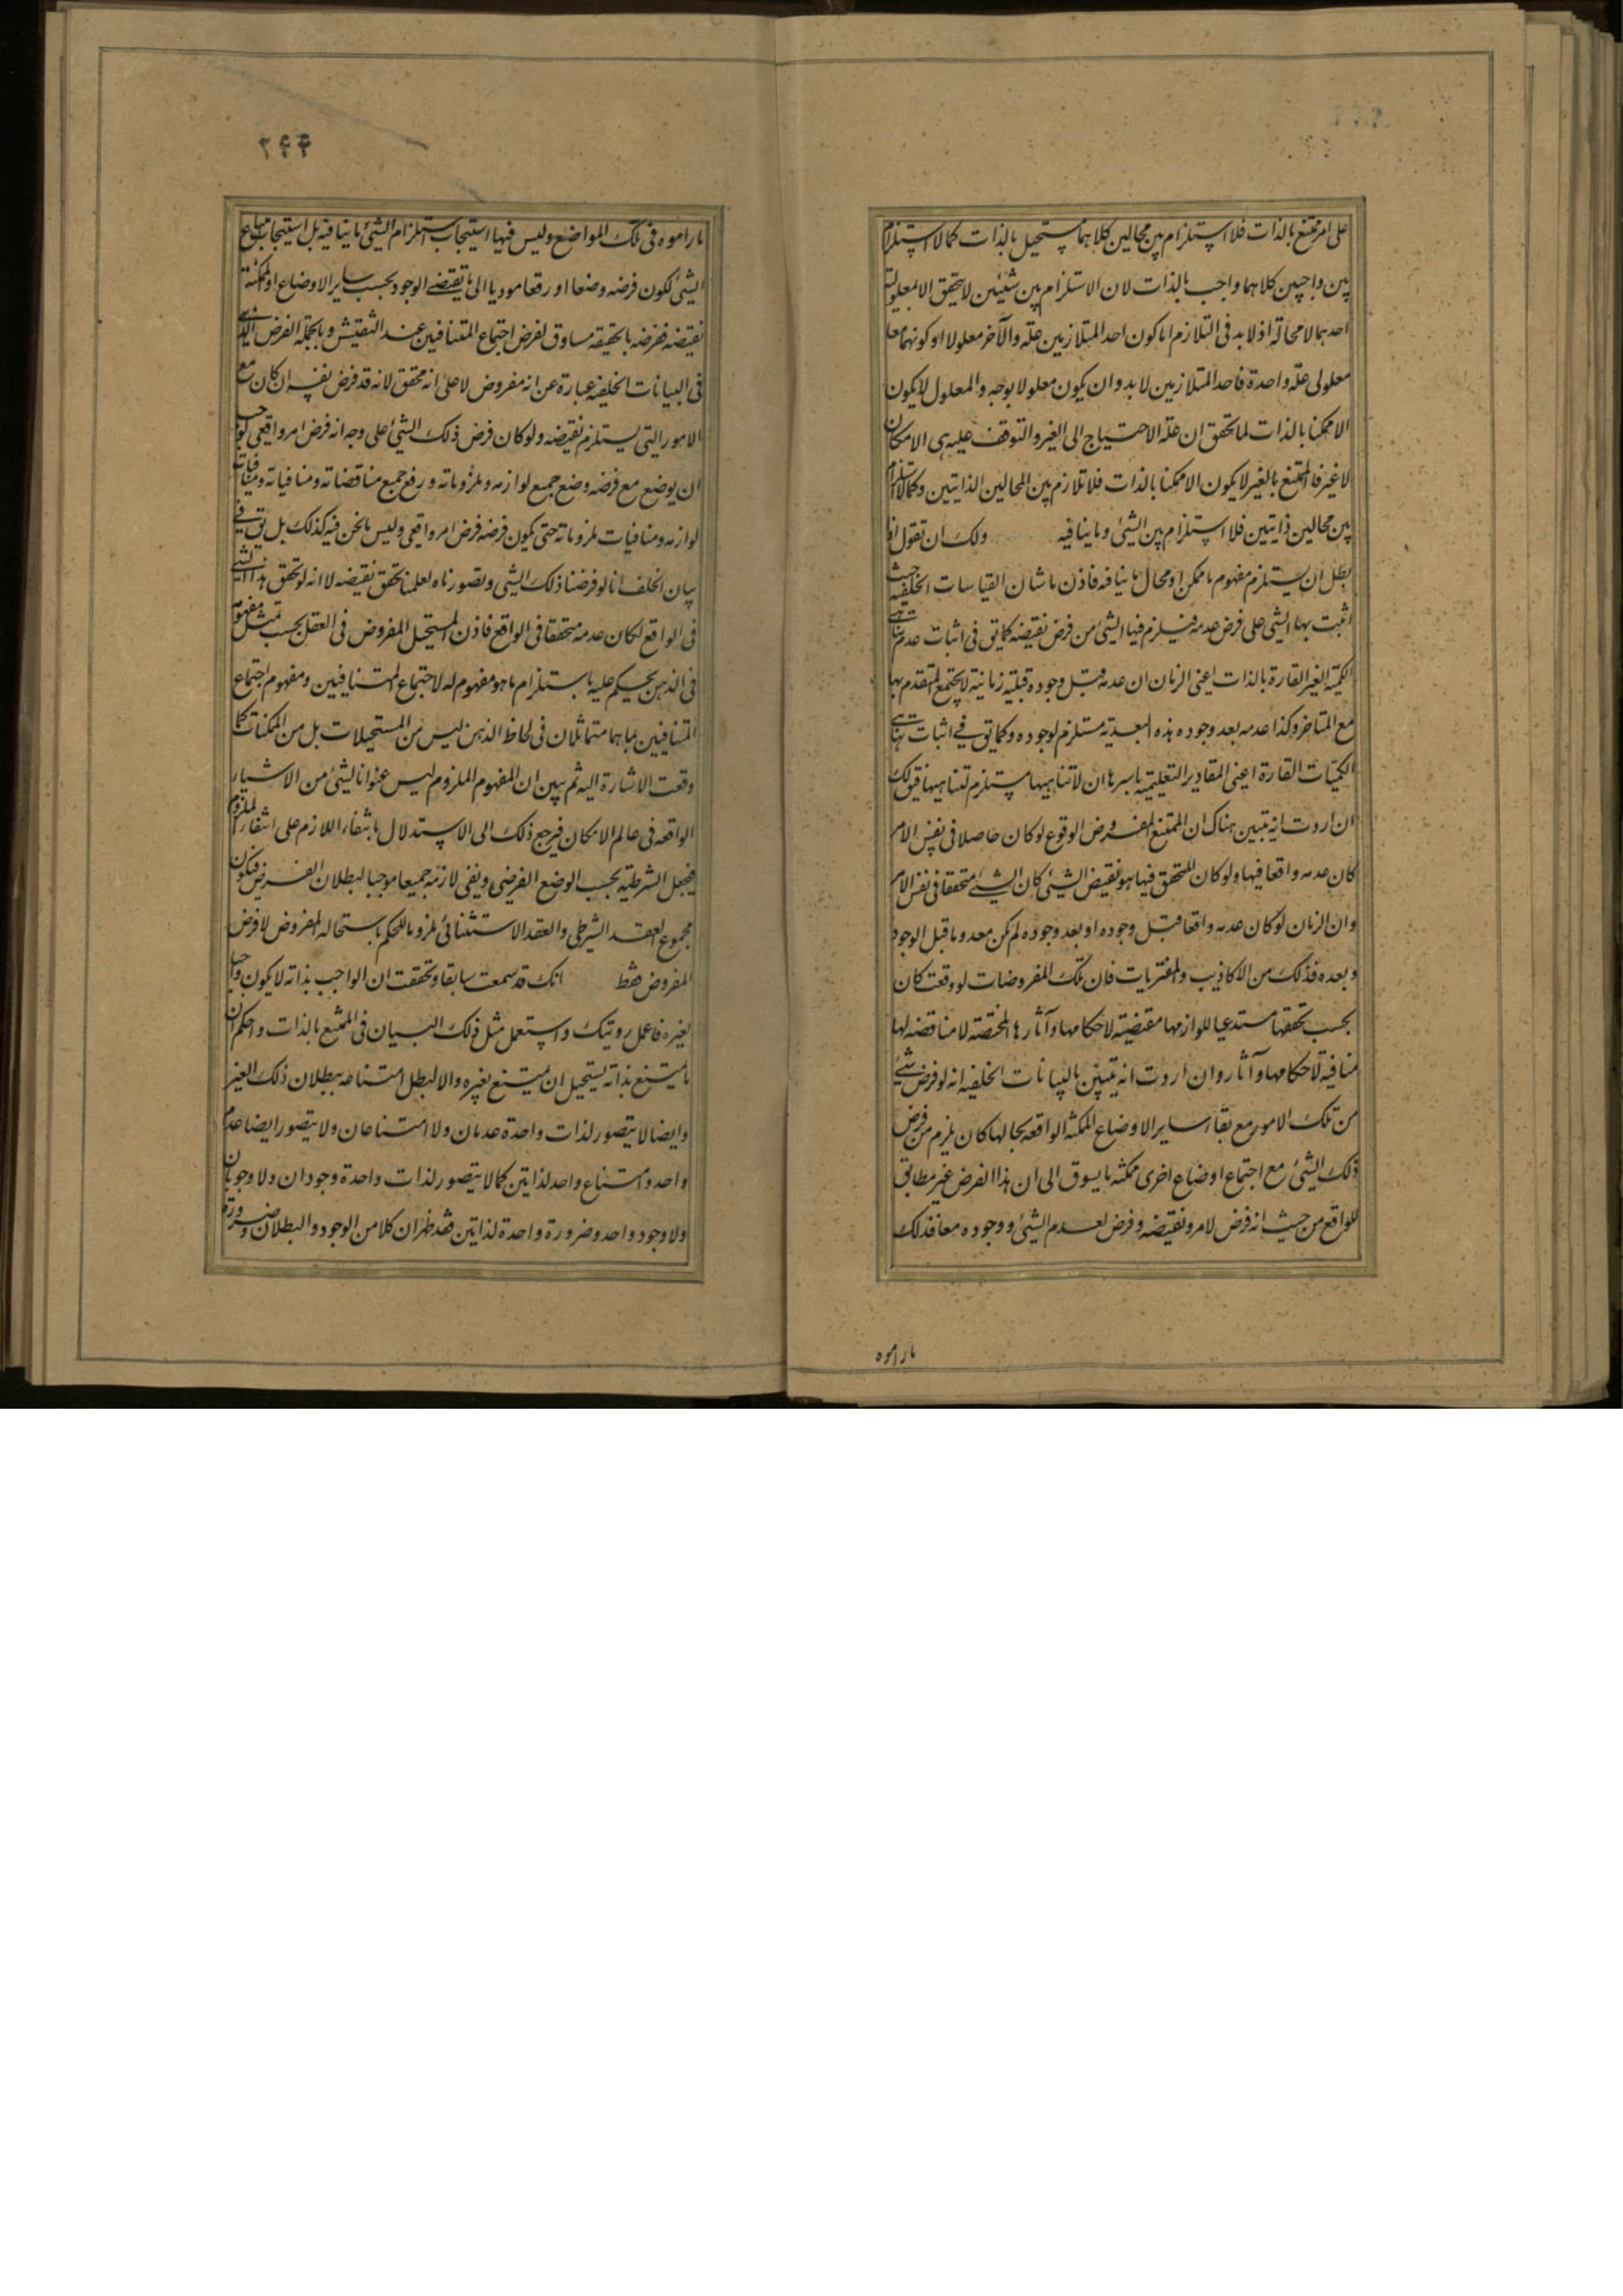 على امر ممتنع بالذات فلا استلزام بين محالين كلاهما مستحيل بالذات كما لا استلزام
بين واجبين كلاهما واجب بالذات لان الاستلزام بين شيئين لا يتحقق الا بمعلولية
احدهما لا محالة اذ لا بد فى التلازم اما كون احد المتلازمين علة والآخر معلولا او كونهما معا
معلولى علة واحدة فاحد المتلازمين لا بد وان يكون معلولا بوجه والمعلول لا يكون
الا ممكنا بالذات لما تحقق ان علة الاحتياج الى الغير والتوقف عليه هى الامكان
لا غير فالممتنع بالغير لا يكون الا ممكنا بالذات فلا تلازم بين المحالين الذاتيين وكما لا استلزام
بين محالين ذاتيين فلا استلزام بين الشئ وما ينافيه ولك ان تقول اذا
بطل ان يستلزم مفهوم ما ممكن او محال ما ينافيه فاذن ما شان القياسات الخلفية حيث
اثبت بها الشئ على فرض عدمه فيلزم فيها الشئ من فرض نقيضه كما يق فى اثبات عدم تناهى
الكمية الغير القارة بالذات اعنى الزمان ان عدمه قبل وجوده قبلية زمانية لا يجتمع المتقدم بها
مع المتاخر وكذا عدمه بعد وجوده هذه البعدية مستلزم لوجوده وكما يق فى اثبات تناهى
الكميات القارة اعنى المقادير التعليمية باسرها ان لا تناهيها مستلزم لتناهيها فيق لك
ان اردت انه تبين هناك ان الممتنع المفروض الوقوع لو كان حاصلا فى نفس الامر
كان عدمه واقعا فيها ولو كان المتحقق فيها هو نقيض الشئ كان الشئ متحققا فى نفس الامر
وان الزمان لو كان عدمه واقعا قبل وجوده او بعد وجوده لم يكن معدوما قبل الوجود
وبعده فذلك من الاكاذيب والمفتريات فان تلك المفروضات لو وقعت كان
بحسب تحققها مستدعيا للوازمها مقتضية لاحكامها وآثارها المختصة لا مناقضة لها
منافية لاحكامها وآثار وان اردت انه تبين بالبيانات الخلفية انه لو فرض شئ
من تلك الامور مع بقاء ساير الاوضاع الممكنة الواقعة بحالها كان يلزم من فرض
ذلك الشئ مع اجتماع اوضاع اخرى ممكنة ما يسوق الى ان هذا الفرض غير مطابق
للواقع من حيث انه فرض لامر ونقيضه وفرض لعدم الشئ ووجوده معا فذلك
ما راموه
ما راموه فى تلك المواضع وليس فيها استيجاب استلزام الشئ ما ينافيه بل استيجاب
الشئ لكون فرضه وضعا او رفعا موديا الى ما يقتضى الوجود بحسب ساير الاوضاع الممكنة
نقيضه ففرضه بالحقيقة مساوق لفرض اجتماع المتنافيين عند التفتيش وبالجملة الفرض الذى
فى البيانات الخلفية عبارة عن انه مفروض لا على انه محقق لانه قد فرض نفسه ان كان مع
الامور التى يستلزم نقيضه ولو كان فرض ذلك الشئ على وجه انه فرض امر واقعى لوجب
ان يوضع مع فرضه وضع جميع لوازمه وملزوماته ورفع جميع مناقضاته ومنافياته ومنافيات
لوازمه ومنافيات ملزوماته حتى يكون فرضه فرض امر واقعى وليس ما نحن فيه كذلك بل يق فى
بيان الخلف انا لو فرضنا ذلك الشئ وتصورناه لعلمنا تحقق نقيضه لا انه لو تحقق هذا الشئ
فى الواقع لكان عدمه متحققا فى الواقع فاذن المستحيل المفروض فى العقل بحسب تمثل مفهومه
فى الذهن يحكم عليه باستلزام ما هو مفهوم له لاجتماع المتنافيين ومفهوم اجتماع
المتنافيين بما هما متماثلان فى لحاظ الذهن ليس من المستحيلات بل من الممكنات كما
وقعت الاشارة اليه ثم يبين ان المفهوم الملزوم ليس عنوانا لشئ من الاشياء
الواقعة فى عالم الامكان فيرجع ذلك الى الاستدلال بانتفاء اللازم على انتفاء الملزوم
فيجعل الشرطية بحسب الوضع الفرضى ونفى لازمه جميعا موجبا لبطلان الفرض فيكون
مجموع العقد الشرطى والعقد الاستثنائى ملزوما للحكم باستحالة المفروض لا فرض
المفروض فقط انك قد سمعت سابقا وتحققت ان الواجب بذاته لا يكون واجبا
بغيره فاعمل رويتك واستعمل مثل ذلك البيان فى الممتنع بالذات واحكم ان
ما يمتنع بذاته يستحيل ان يمتنع بغيره والا لبطل امتناعه ببطلان ذلك الغير
وايضا لا يتصور لذات واحدة عدمان ولا امتناعان ولا يتصور ايضا عدم
واحد وامتناع واحد لذاتين كما لا يتصور لذات واحدة وجودان ولا وجوبان
ولا وجود واحد وضرورة واحدة لذاتين فقد ظهر ان كلا من الوجود والبطلان وضرورة